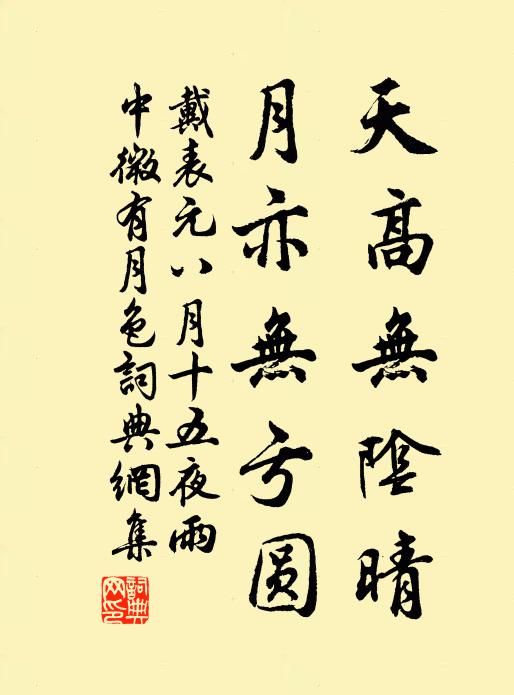 天高無陰晴
月亦無亏圆
戴表元八月十五夜雨
中微有月色詞典網集
詞典
网印